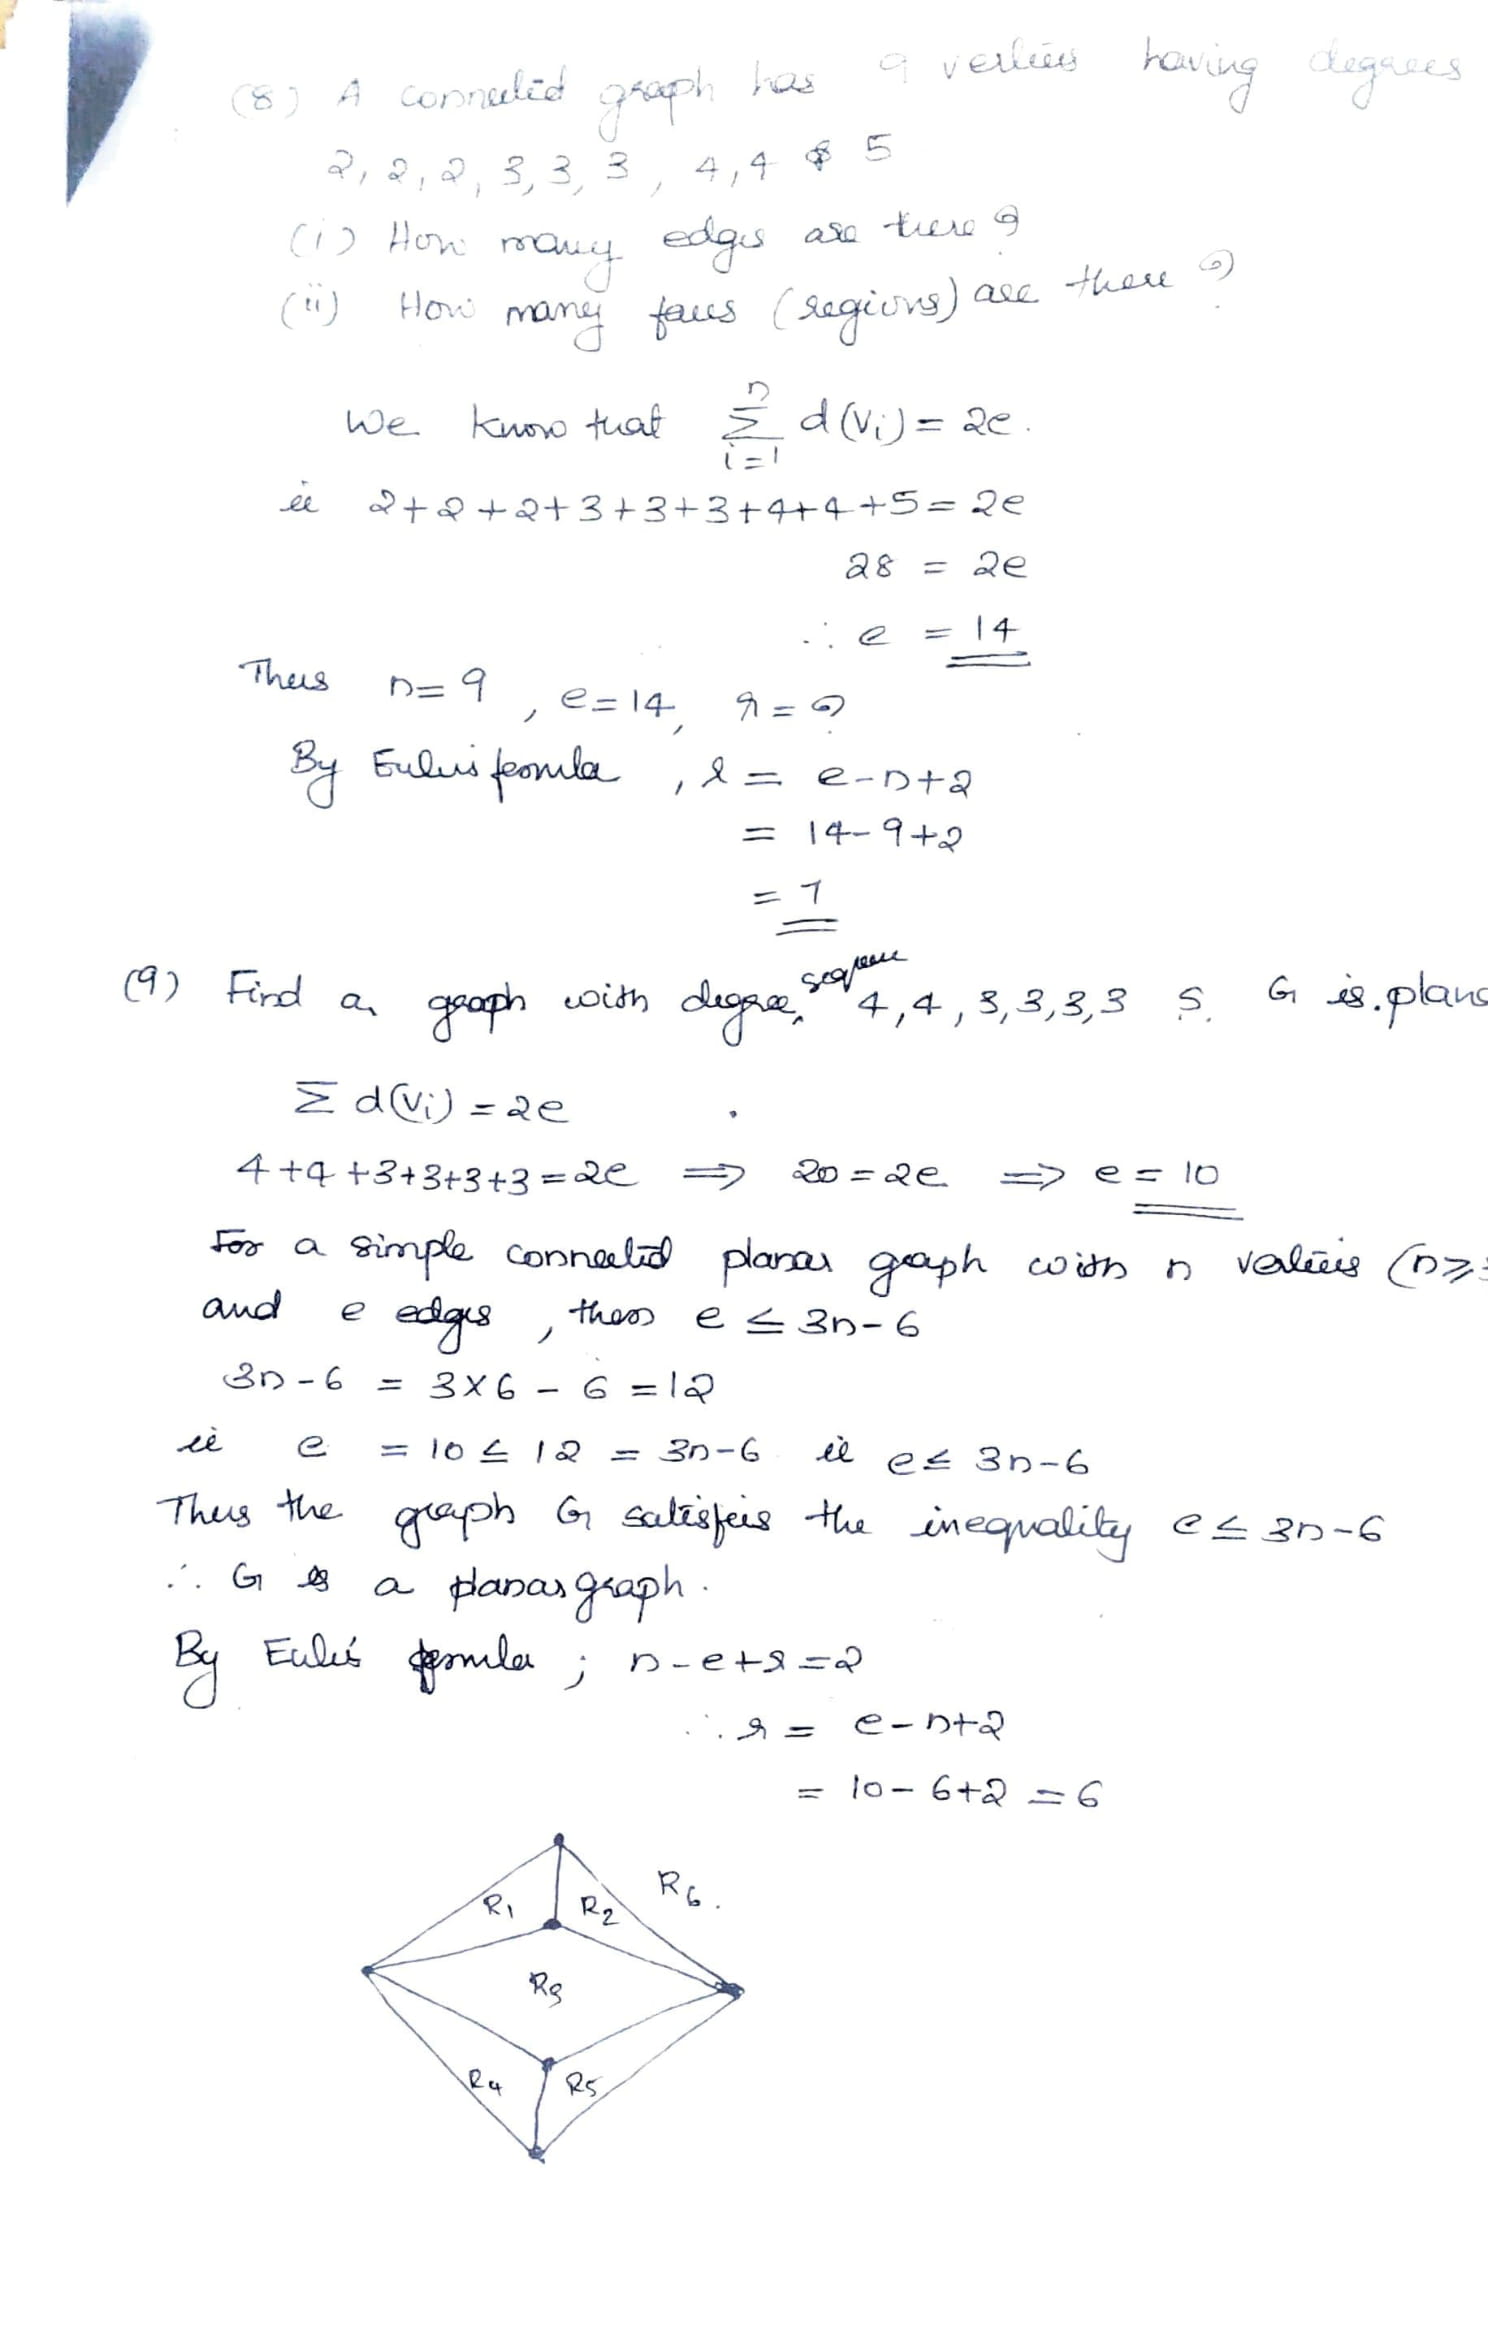 (8) A connected graph has 9 vertices having degrees
2, 2, 2, 3, 3, 3, 4, 4 & 5
(i) How many edges are there ?
(ii) How many faces (regions) are there ?
We know that n Σ i=1 d(vi) = 2e.
ie 2+2+2+3+3+3+4+4+5 = 2e
28 = 2e
∴ e = 14
Thus n=9, e=14, r=?
By Euler's formula, r = e-n+2
= 14-9+2
= 7
(9) Find a graph with degree sequence 4,4,3,3,3,3 S. G is plana
Σ d(vi) = 2e
4+4+3+3+3+3 = 2e ⟹ 20 = 2e ⟹ e = 10
For a simple connected planar graph with n vertices (n≥
and e edges, then e ≤ 3n-6
3n-6 = 3×6 - 6 = 12
ie e = 10 ≤ 12 = 3n-6 ie e ≤ 3n-6
Thus the graph G satisfies the inequality e ≤ 3n-6
∴ G is a planar graph.
By Euler's formula ; n-e+r=2
∴ r = e-n+2
= 10-6+2 = 6
R6.
R1 R2
R3
R4 R5